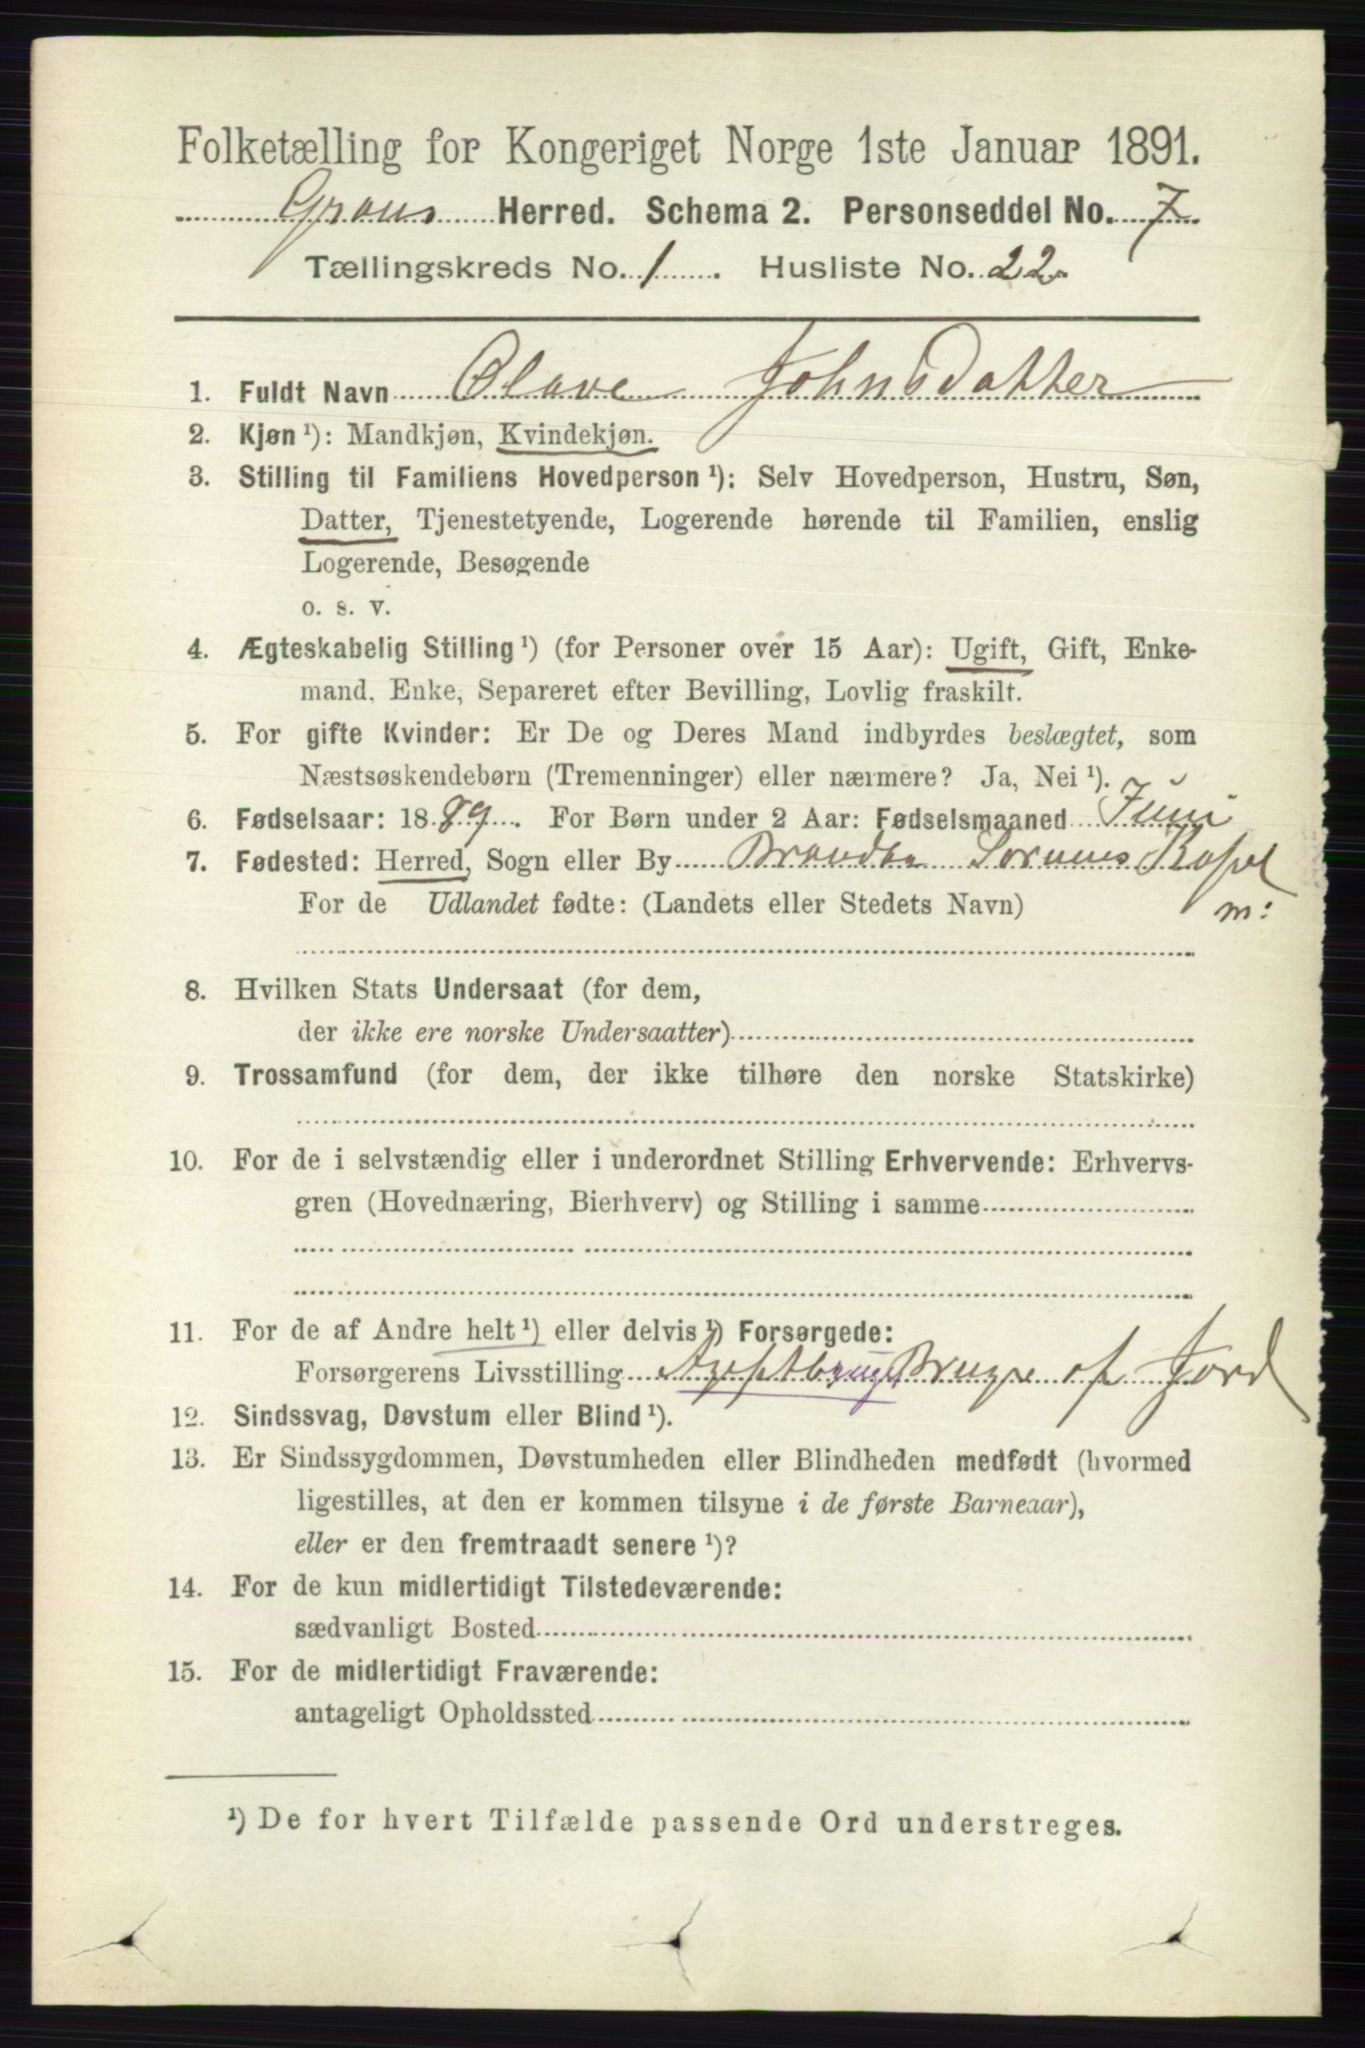 Folketælling for Kongeriget Norge 1ste Januar 1891.
Grans Herred. Schema 2. Personseddel No. 7
Tællingskreds No. 1. Husliste No. 22
1. Fuldt Navn Olave Johnsdatter
2. Kjøn ¹): Mandkjøn, Kvindekjøn.
3. Stilling til Familiens Hovedperson ¹): Selv Hovedperson, Hustru, Søn,
Datter, Tjenestetyende, Logerende hørende til Familien, enslig
Logerende, Besøgende
o. s. v.
4. Ægteskabelig Stilling ¹) (for Personer over 15 Aar): Ugift, Gift, Enke-
mand, Enke, Separeret efter Bevilling, Lovlig fraskilt.
5. For gifte Kvinder: Er De og Deres Mand indbyrdes beslægtet, som
Næstsøskendebørn (Tremenninger) eller nærmere? Ja, Nei ¹).
6. Fødselsaar: 1889. For Børn under 2 Aar: Fødselsmaaned Juni
7. Fødested: Herred, Sogn eller By Brandbu
For de Udlandet fødte: (Landets eller Stedets Navn) m:
8. Hvilken Stats Undersaat (for dem,
der ikke ere norske Undersaatter)
9. Trossamfund (for dem, der ikke tilhøre den norske Statskirke)
10. For de i selvstændig eller i underordnet Stilling Erhvervende: Erhvervs-
gren (Hovednæring, Bierhverv) og Stilling i samme
11. For de af Andre helt ¹) eller delvis ¹) Forsørgede:
Forsørgerens Livsstilling Bruger af Jord
12. Sindssvag, Døvstum eller Blind ¹).
13. Er Sindssygdommen, Døvstumheden eller Blindheden medfødt (hvormed
ligestilles, at den er kommen tilsyne i de første Barneaar),
eller er den fremtraadt senere ¹)?
14. For de kun midlertidigt Tilstedeværende:
sædvanligt Bosted
15. For de midlertidigt Fraværende:
antageligt Opholdssted
¹) De for hvert Tilfælde passende Ord understreges.